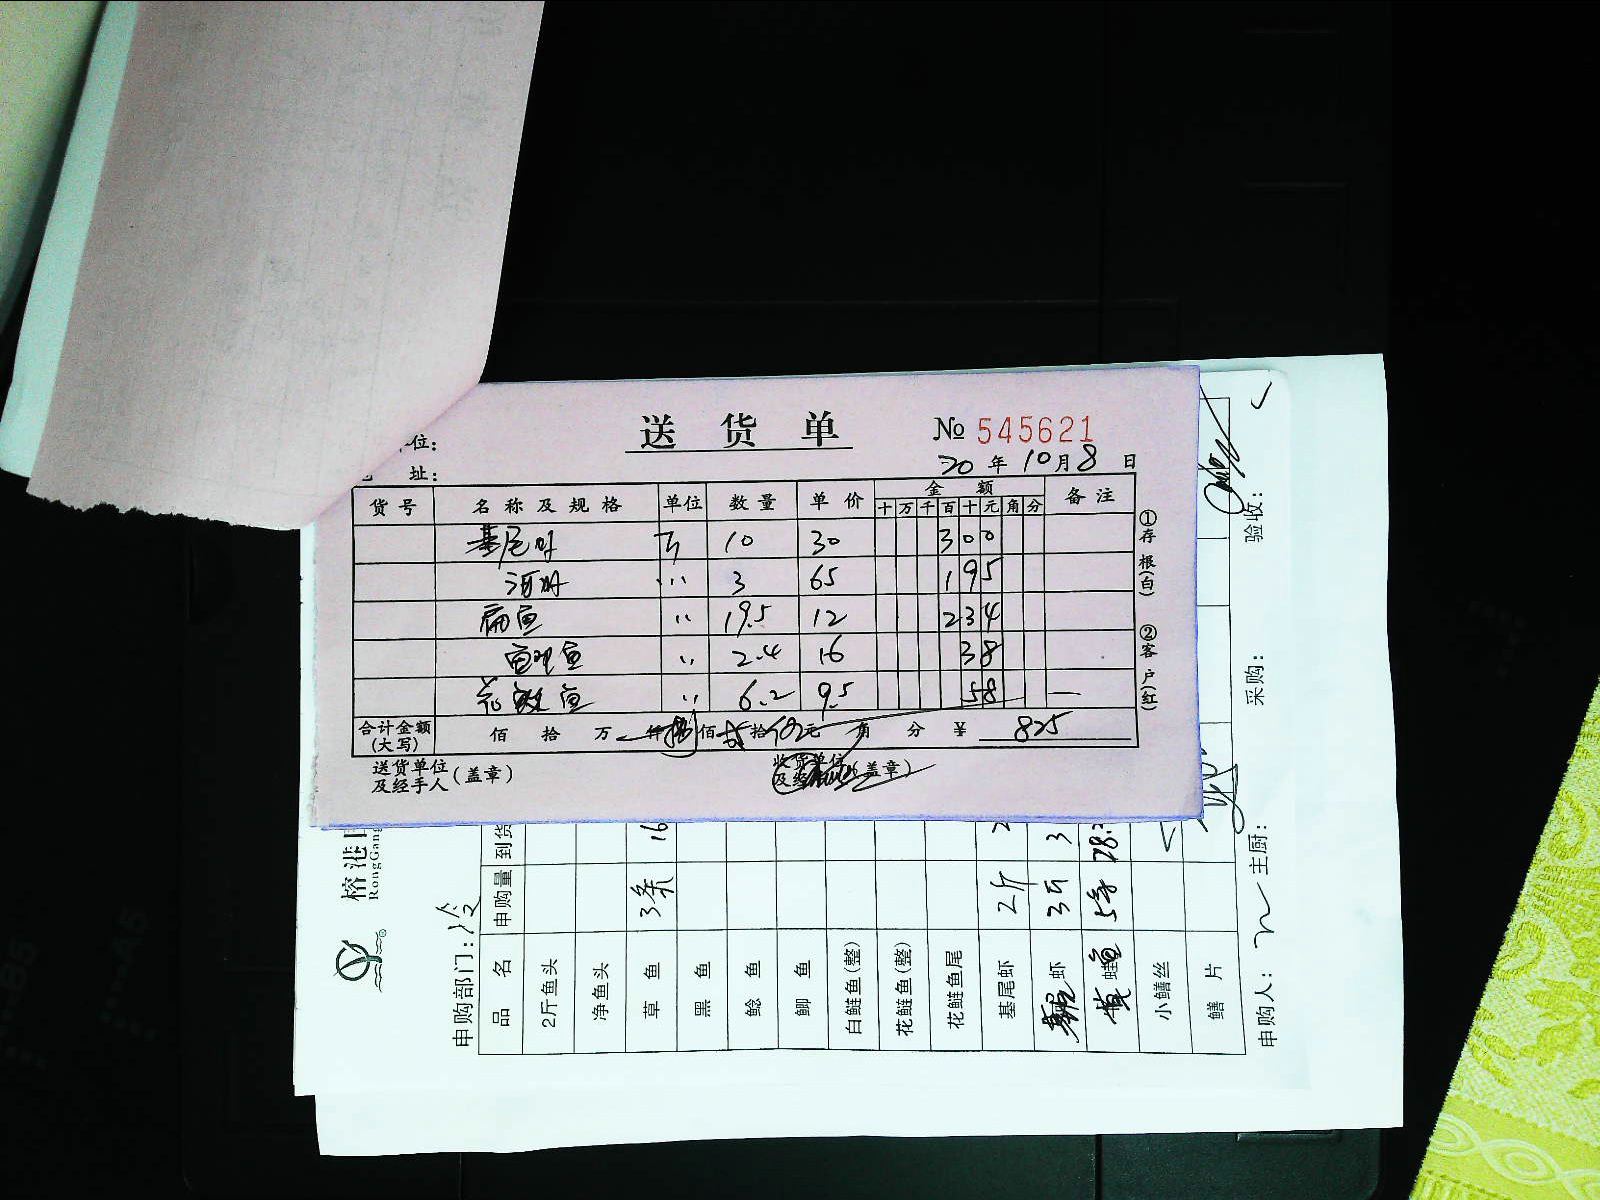 送货单
№ 545621
单位：
地 址：
20 年 10 月 8 日
货号 名称及规格 单位 数量 单价 金额 备注
十 万 千 百 十 元 角 分
基尾虾 斤 10 30 300
河虾 〃 3 65 195
扁鱼 〃 19.5 12 234
〃 2.4 16 38
花鲢鱼 〃 6.2 9.5 58
合计金额(大写) 佰 拾 万 仟 捌 佰 拾 元 角 分 ¥ 825
送货单位及经手人(盖章)
收货单位及经手人(盖章)
①存根(白) ②客户(红)
榕港
RongGang
申购部门：冷
品名 申购量 到货
2斤鱼头
净鱼头
草鱼 3条 16
黑鱼
鲶鱼
鲫鱼
白鲢鱼(整)
花鲢鱼(整)
花鲢鱼尾
基尾虾 2斤 2
虾 3斤 3
黄鱼 5条
小鳝丝
鳝片
申购人： 主厨： 采购： 验收：
B5
A5